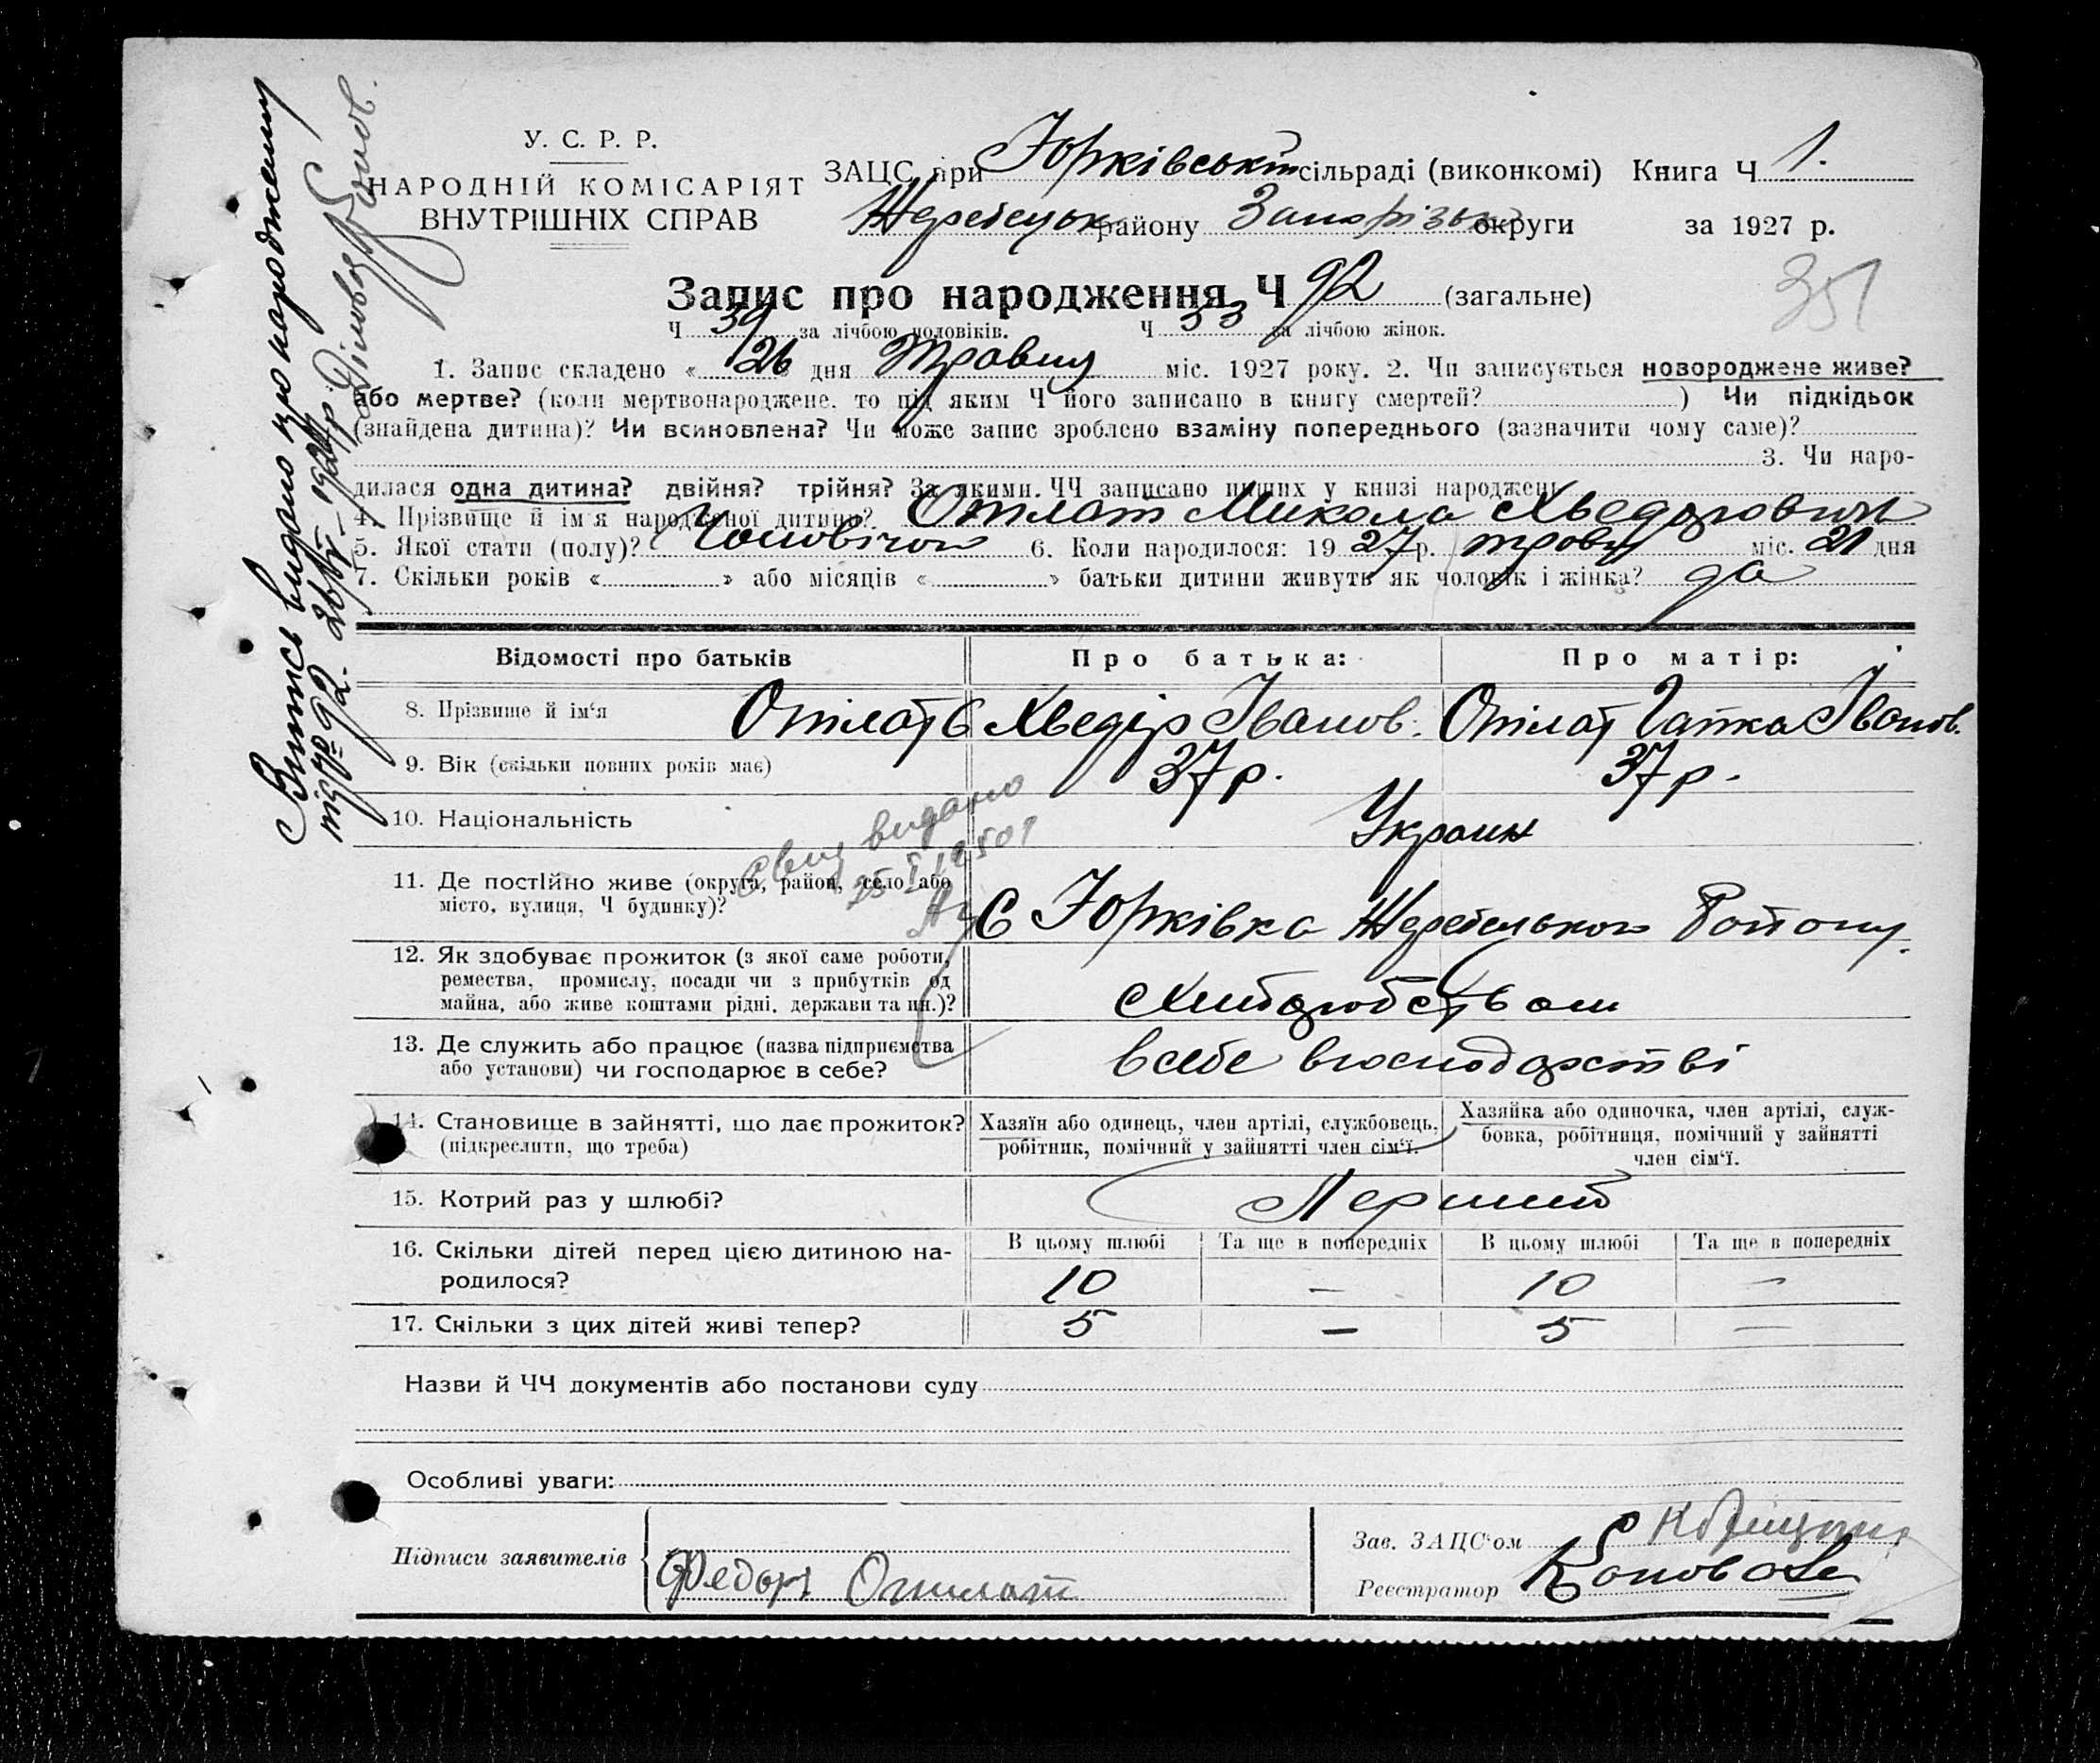 У. С. Р. Р.
НАРОДНІЙ КОМІСАРІЯТ
ВНУТРІШНІХ СПРАВ
ЗАЦС при Юрківській сільраді (виконкомі) Книга Ч 1.
Жеребецьк району Запорізьк округи за 1927 р.
Запис про народження Ч 92 (загальне)
351
Ч 39 за лічбою чоловіків. Ч 53 за лічбою жінок.
1. Запис складено « 26 » дня Травня міс. 1927 року. 2. Чи записується новороджене живе?
або мертве? (коли мертвонароджене, то під яким Ч його записано в книгу смертей? ) Чи підкідьок
(знайдена дитина)? Чи всиновлена? Чи може запис зроблено взаміну попереднього (зазначити чому саме)?
3. Чи наро-
дилася одна дитина? двійня? трійня? За якими ЧЧ записано инших у книзі народжень
4. Прізвище й ім'я народженої дитини? Отлат Микола Хведорович
5. Якої стати (полу)? Чоловічої 6. Коли народилося: 19 27 р. травня міс. 21 дня
7. Скільки років « » або місяців « » батьки дитини живуть як чоловік і жінка? да
Відомості про батьків Про батька: Про матір:
8. Прізвище й ім'я Хведір Іванов. Гапка Іванов.
9. Вік (скільки повних років має) 37 р. 37 р.
10. Національність Украин
свид видано
11. Де постійно живе (округа, район, село або
місто, вулиця, Ч будинку)? С Юрківка Жеребецького Району.
12. Як здобуває прожиток (з якої саме роботи,
ремества, промислу, посади чи з прибутків од
майна, або живе коштами рідні, держави та ин.)? Хліборобством
13. Де служить або працює (назва підприємства
або установи) чи господарює в себе? в себе в господарстві
14. Становище в зайнятті, що дає прожиток?
(підкреслити, що треба)
Хазяїн або одинець, член артілі, службовець,
робітник, помічний у зайнятті член сім'ї.
Хазяйка або одиночка, член артілі, служ-
бовка, робітниця, помічний у зайнятті
член сім'ї.
15. Котрий раз у шлюбі? Перший
16. Скільки дітей перед цією дитиною на-
родилося?
В цьому шлюбі Та ще в попередніх В цьому шлюбі Та ще в попередніх
10 — 10 —
17. Скільки з цих дітей живі тепер? 5 — 5 —
Назви й ЧЧ документів або постанови суду
Особливі уваги:
Підписи заявителів Федор
Зав. ЗАЦС'ом
Реєстратор
Випись видано про народження
під № 92.